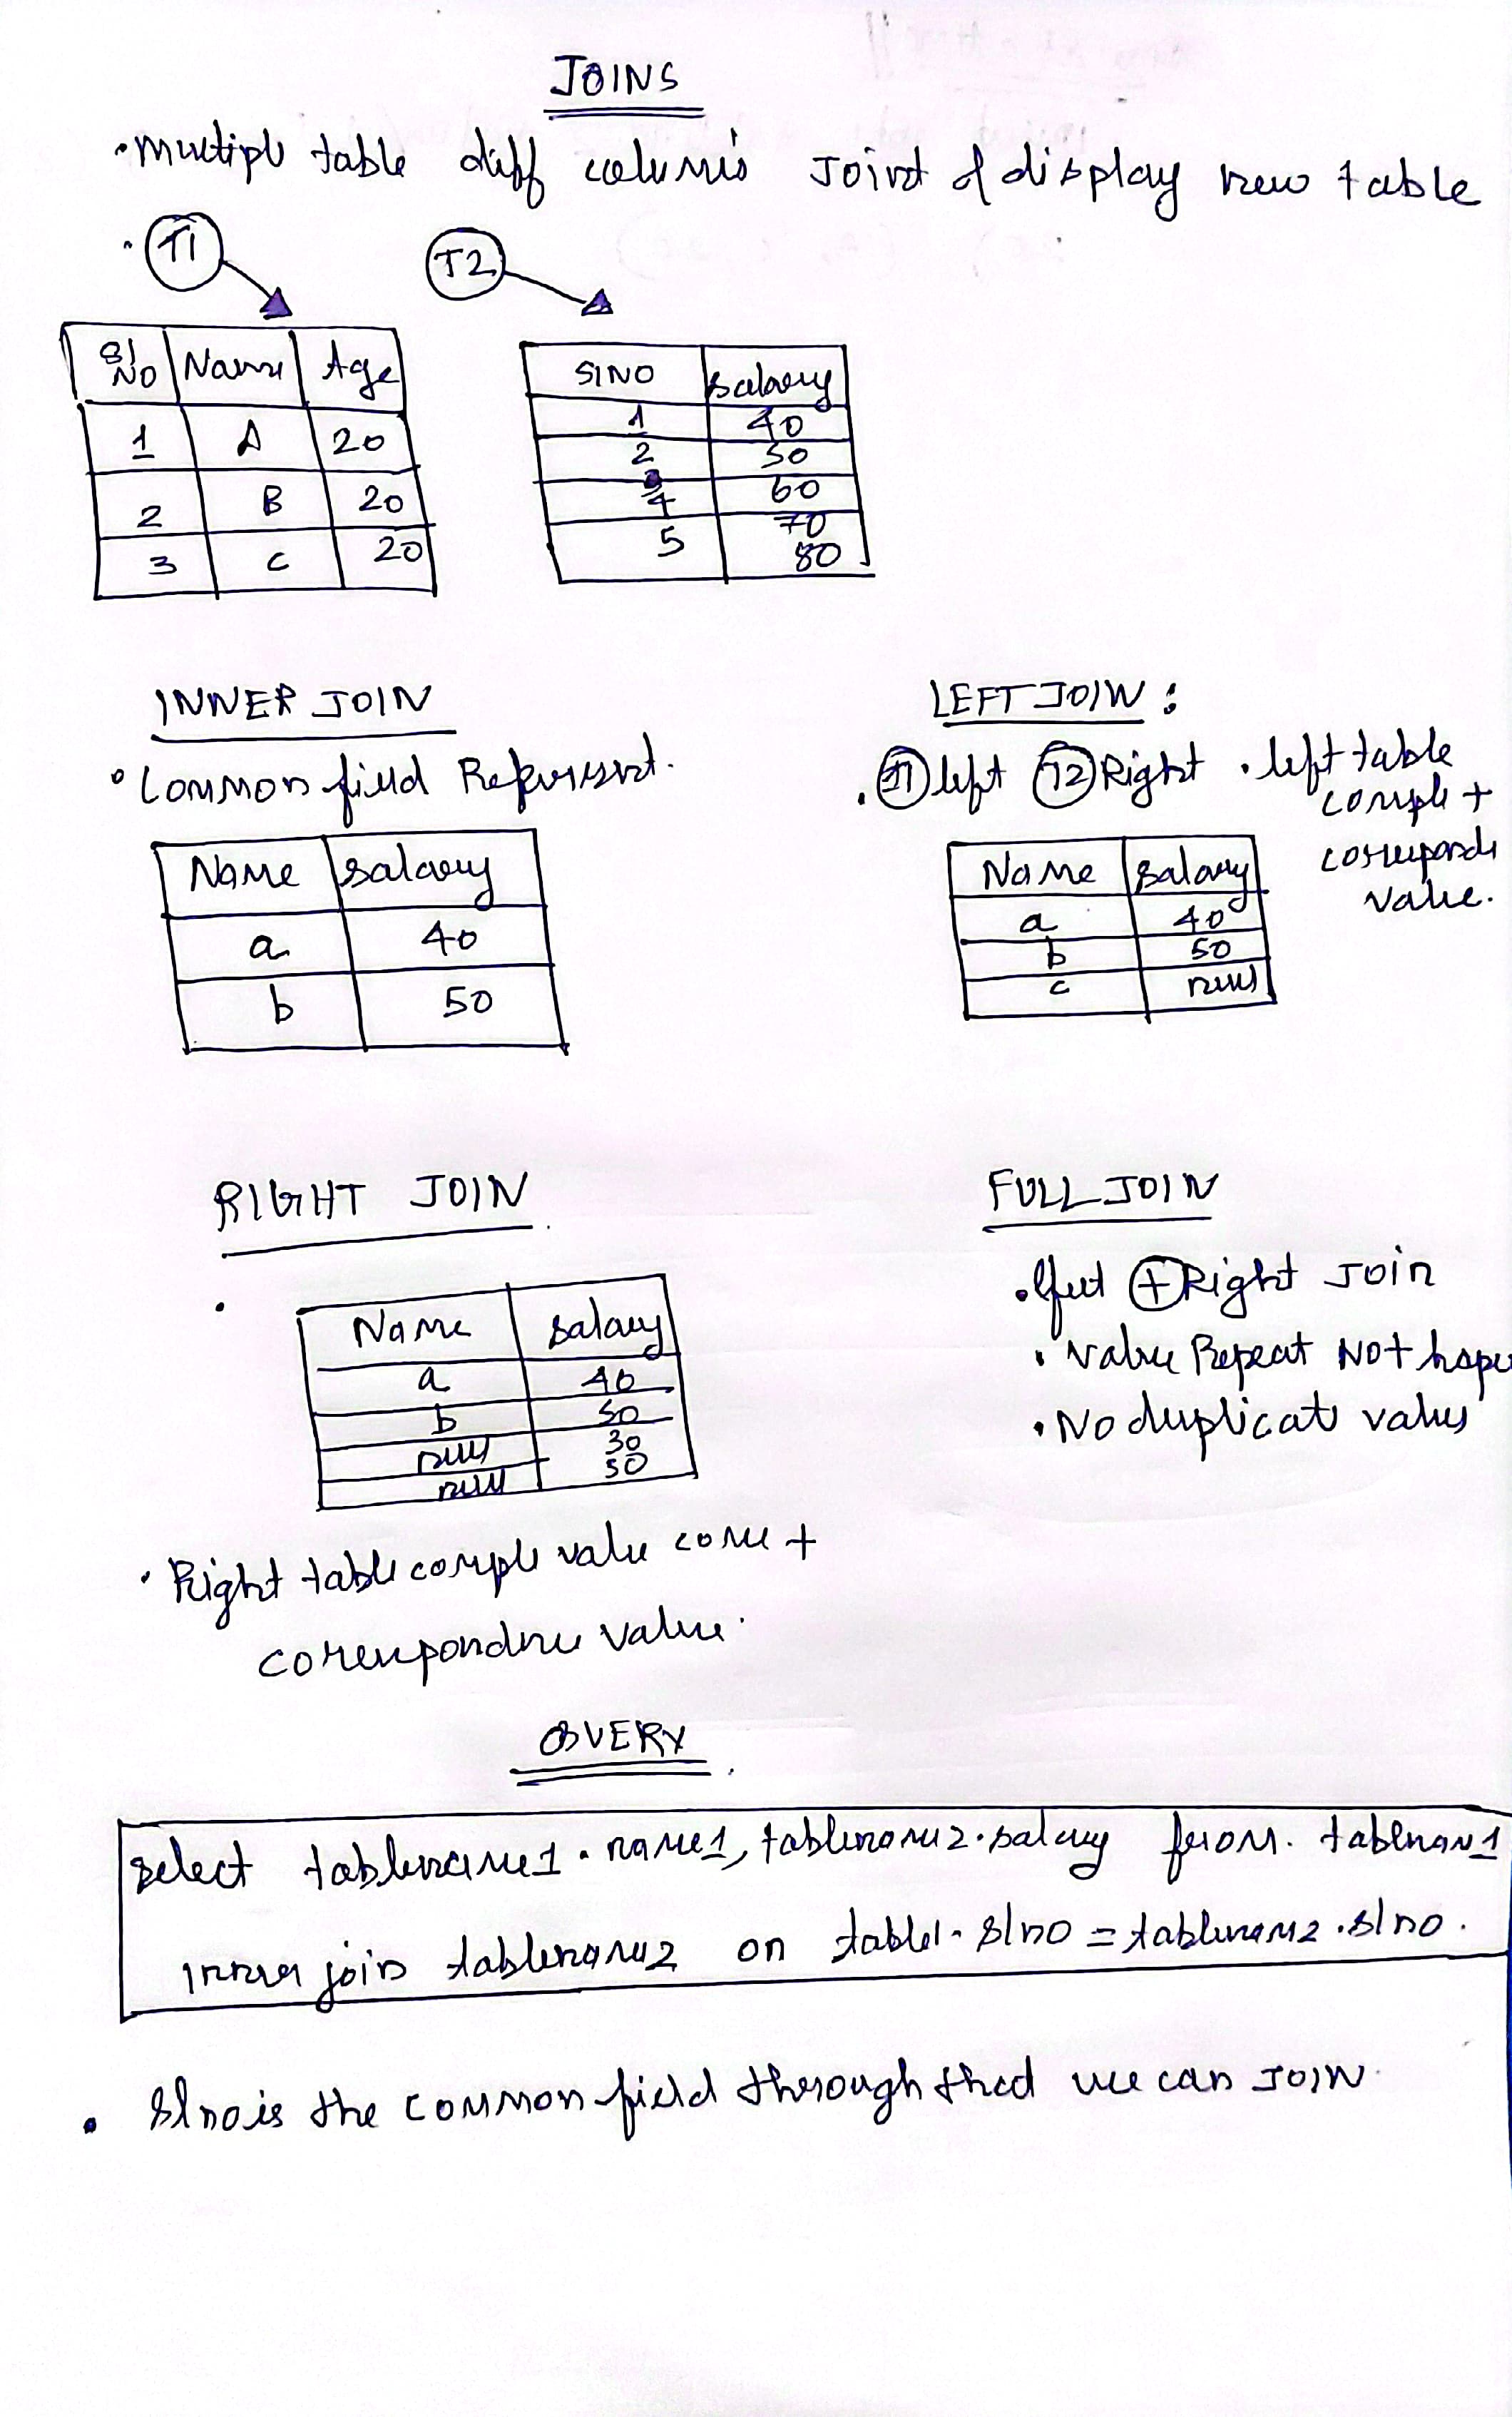 JOINS
• Multiple table diff colums Joint & display new table
• T1
T2
Sl NO Name Age
1 A 20
2 B 20
3 C 20
SlNO salary
1 40
2 50
60
4 70
5 80
INNER JOIN
• Common field Represent.
Name salary
a 40
b 50
LEFT JOIN :
• T1 left T2 Right • left table
comple +
correspondi
value.
Name salary
a 40
b 50
c null
RIGHT JOIN
•
Name salary
a 40
b 50
null 30
null 50
• Right table comple value come +
correspondne value.
FULL JOIN
• + Right Join
• value Repeat Not hape
• No duplicate values
QUERY
select tablename1.name1, tablename2.salary from. tablenam1
inner join tablename2 on table1.slno = tablename2.slno.
• Slno is the common field through that we can JOIN